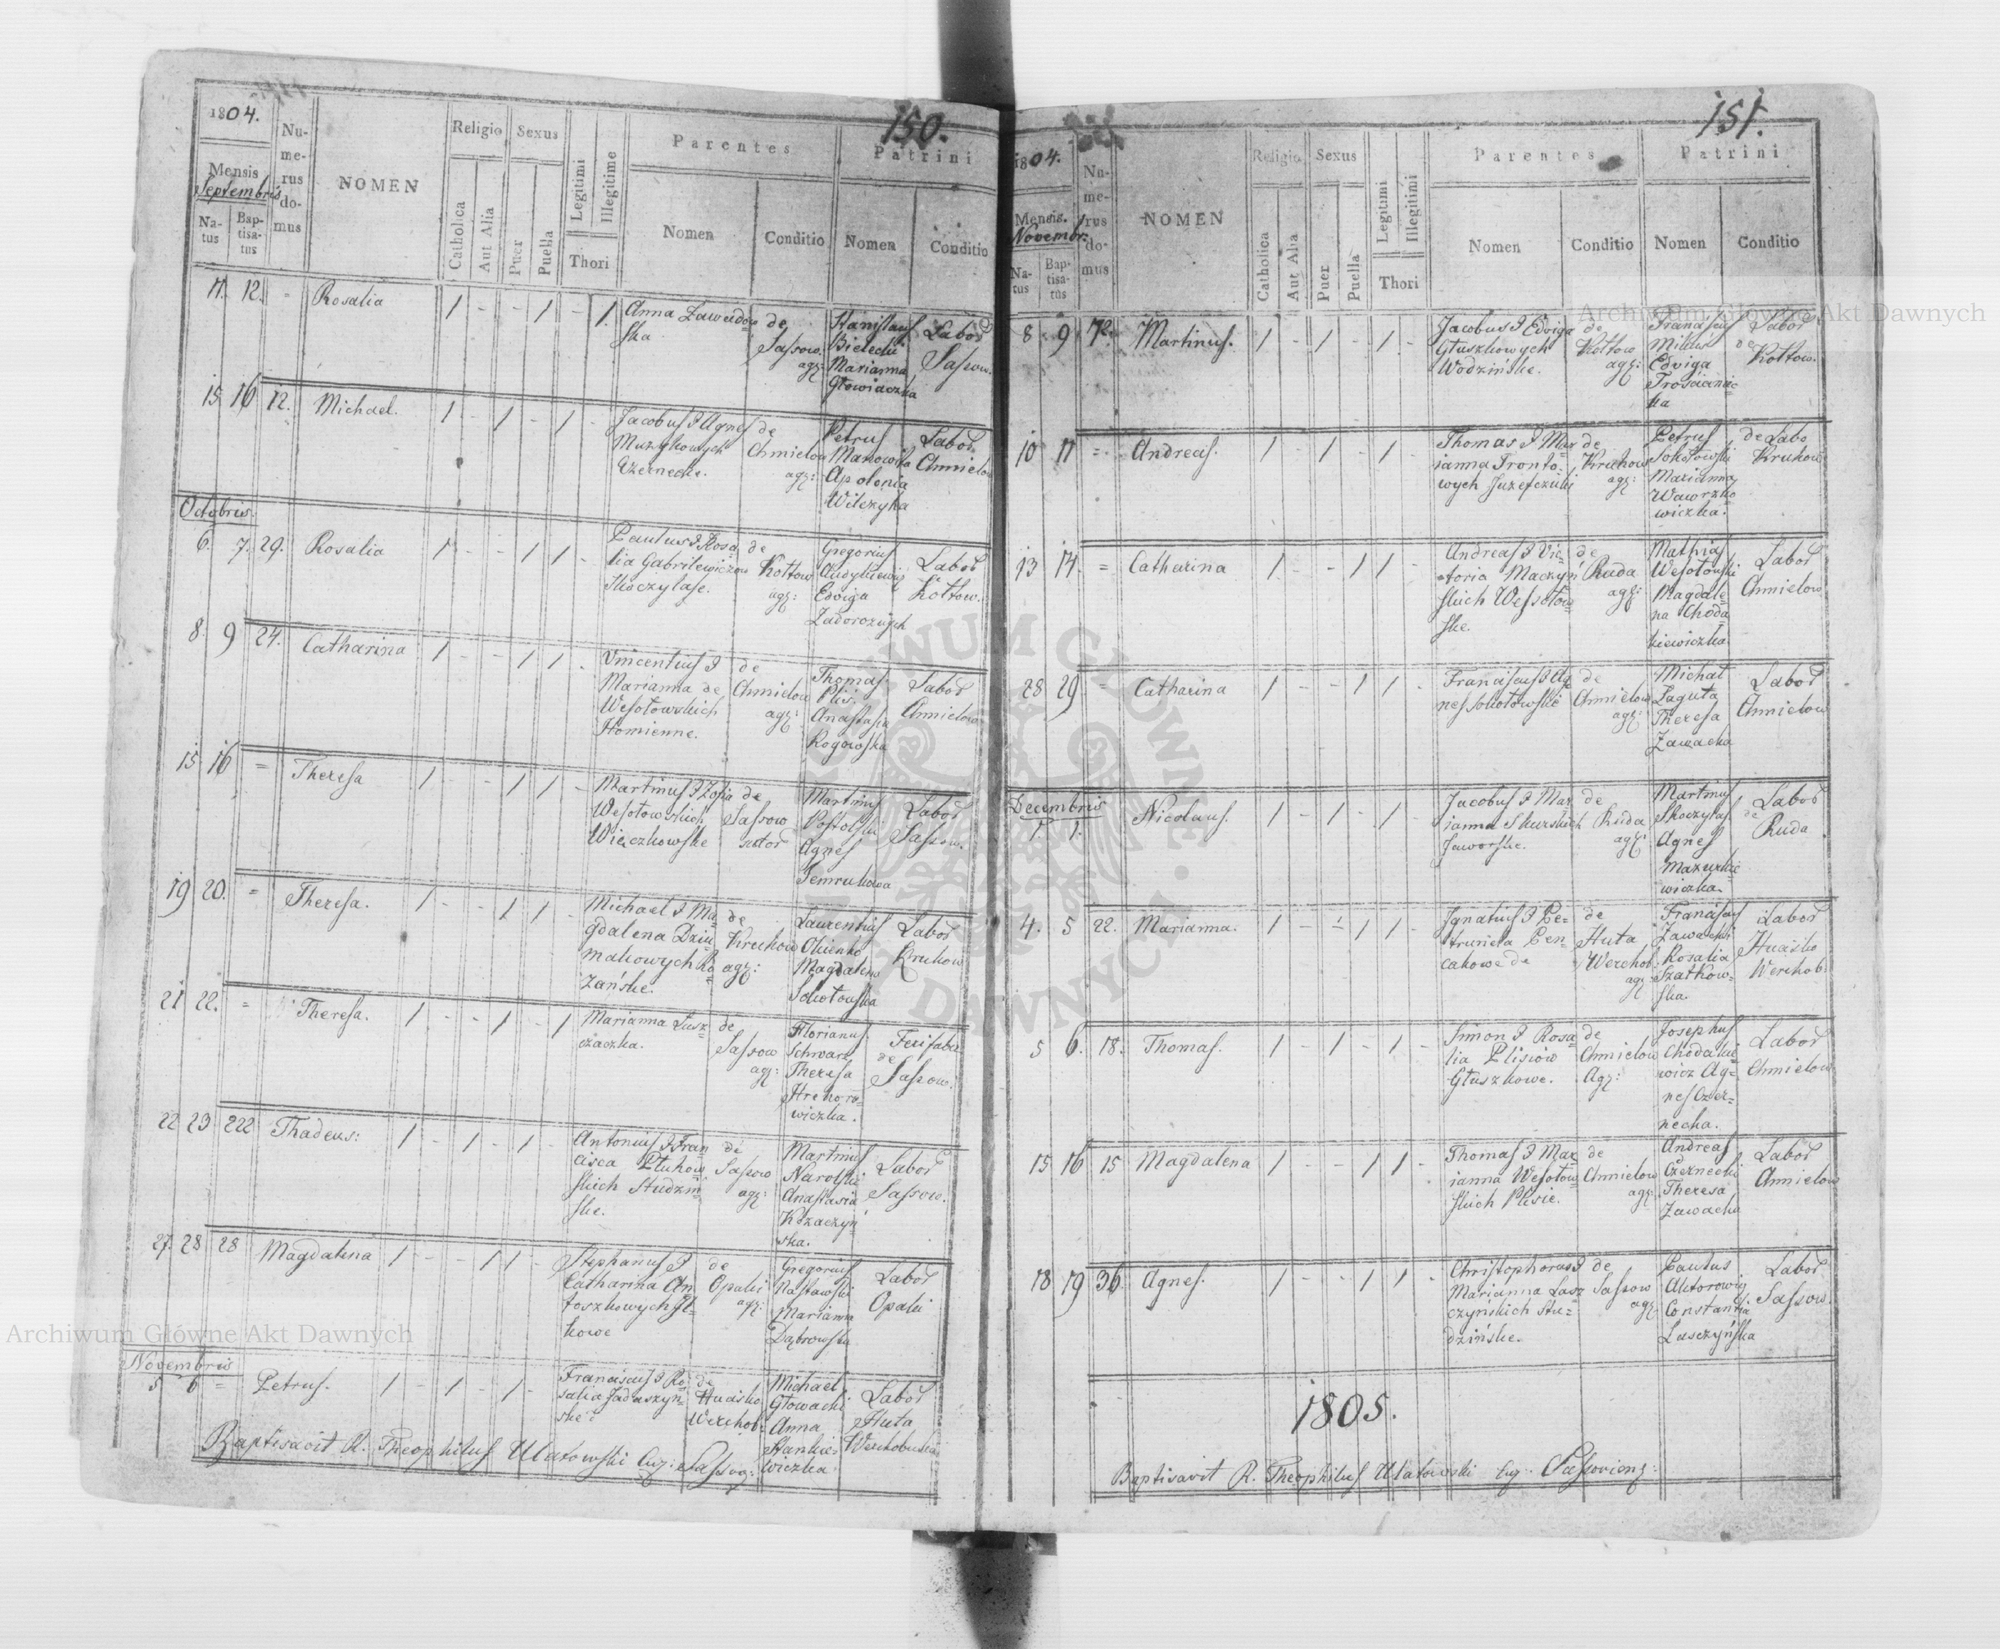 150.
1804.
Mensis
Septembris
Na-
tus
Bap-
tisa-
tus
Nu-
me-
rus
do-
mus
NOMEN
Religio
Catholica
Aut Alia
Sexus
Puer
Puella
Legitimi
Illegitime
Thori
Parentes
Nomen
Conditio
Patrini
Nomen
Conditio
11. 12. = Rosalia 1 - - 1 - 1.
Anna Zawadow
ska
de
Sassow
agf:
Stanislaus
Bielecki
Marianna
Głowiaczka
Labor
Sassow.
15 16 12. Michael. 1 - 1 - 1 -
Jacobus & Agnes
Muzykowych
Czernecke.
de
Chmielow
agf:
Petrus
Apolonia
Wilczyka
Labor
Chmielow
Octobris.
6. 7. 29. Rosalia 1 - - 1 1 -
Paulus & Rosa
lia Gabrilewiczow
Skoczylase.
de
Kołtow
agf:
Gregorius
Edviga
Zadorożnych
Labor
Kołtow.
8. 9 24. Catharina 1 - - 1 1 -
Vincentius &
Marianna de
Wesołowskich
Homienne.
de
Chmielow
agf:
Thomas
Plis.
Anastasia
Rogowska
Labor
Chmielow
15 16 = Theresa 1 - - 1 1 -
Martinus & Zofia
Wesołowskich
Wieczkowske
de
Sassow
Martinus
Postolski
Agnes
Jemrukowa
Labor
Sassow.
19 20. = Theresa. 1 - - 1 1 -
Michael & Ma
gdalena Dziu
makowych Ro
zańske.
de
Kruchow
agf:
Laurentius
Okienko
Magdalena
Sokołowska
Labor
Kruhow
21 22. = Theresa. 1 - - 1 - 1
Marianna Lusz
czaczka.
de
Sassow
agf:
Florianus
Schwarz
Theresa
Hrehoro-
wiczka.
de
Sassow.
22 23 222 Thadeus: 1 - 1 - 1 -
Antonius & Fran
cisca Płuhow
skich Studzin
ske.
de
Sassow
agf:
Martinus
Narolski
Anastasia
Kozaczyń
ska.
Labor
Sassow.
27. 28 28 Magdalena 1 - - 1 1 -
Stephanus &
Catharina An
toszkowych Il
kowe
de
Opaki
agf:
Gregorius
Rastawski
Marianna
Dąbrowska
Labor
Opaki
Novembris
5 6 = Petrus. 1 - 1 - 1 -
Franciscus & Ro
salia Jaduszyń-
ske
de
Huaisko
Werchob:
Michael
Głowacki
Anna
Stankie=
wiczka.
Labor
Huta
Werchobuska
Baptisavit R. Theophilus Ulatowski Cur: Sassov:
151.
1804.
Mensis.
Novembr.
Na-
tus
Bap-
tisa-
tus
Nu-
me-
rus
do-
mus
NOMEN
Religio
Catholica
Aut Alia
Sexus
Puer
Puella
Legitimi
Illegitimi
Thori
Parentes
Nomen
Conditio
Patrini
Nomen
Conditio
8 9 72. Martinus. 1 - 1 - 1 -
Jacobus & Edviga
Głuszkowych
Wodzińske.
de
Kołtow
agf:
Franciscus
Mikus
Edviga
Trościaniec
ka
Labor
de
Kołtow.
10 11 = Andreas. 1 - 1 - 1 -
Thomas & Mar
ianna Fronto-
wych Juzefczuki
de
Kruhow
agf:
Petrus
Sokołowski
Marianna
Wawrzko
wiczka.
de Labo
Kruhow
13 14. = Catharina 1 - - 1 1 -
Andreas & Vic
toria Maczyń
skich Wesołow
ske.
de
Ruda
agf:
Mathias
Wesołowski
Magdale
na Choda
kiewiczka.
Labor
Chmielow
28 29. = Catharina 1 - - 1 1 -
Franciscus & Ag
nes Sokołowskie
de
Chmielow
agf:
Michał
Łaguta
Theresa
Zawacka
Labor
Chmielow
Decembris
1 1. Nicolaus. 1 - 1 - 1 -
Jacobus & Mar
ianna Skurskich
Jaworske.
de
Ruda
agf:
Martinus
Skoczylas.
Agnes
Mazurkie
wiczka.
Labor
de
Ruda
4. 5 22. Marianna. 1 - - 1 1 -
Ignatius & Pe-
trunela Pen-
cakowe de
de
Huta
Werchob:
agf
Franciscus
Zawacki
Rosalia
Szatkow-
ska.
Labor
Huaisko
Werchob:
5 6. 18. Thomas. 1 - 1 - 1 -
Simon & Rosa
lia Plisiow
Głuszkowe.
de
Chmielow
Agf:
Josephus
Chodakie
wicz Ag-
nes Czer=
necka.
Labor
Chmielow
15 16 15 Magdalena 1 - - 1 1 -
Thomas & Mar
ianna Wesołow
skich Plisie.
de
Chmielow
agf:
Andreas
Czernecki
Theresa
Zawacka
Labor
Chmielow
18 19 36. Agnes. 1 - - 1 1 -
Christophorus &
Marianna Łasz
czyńskich Stu-
dzińske.
de
Sassow
agf:
Paulus
Aktorowicz
Constantia
Luszczyńska
Labor
Sassow.
1805.
Baptisavit R. Theophilus Ulatowski Cur. Sassoviens:
Archiwum Główne Akt Dawnych
Archiwum Główne Akt Dawnych
ARCHIWUM GŁÓWNE AKT DAWNYCH